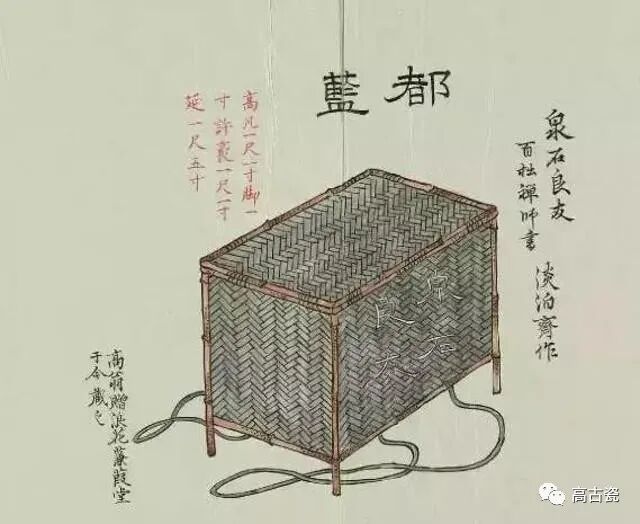 都藍
泉石良友
百拙禅師書
淡泊齋作
高凡一尺一寸脚一
寸許袤一尺一寸
延一尺五寸
泉石
良友
高翁贈浪花蒹葭堂
于今蔵之
高古瓷